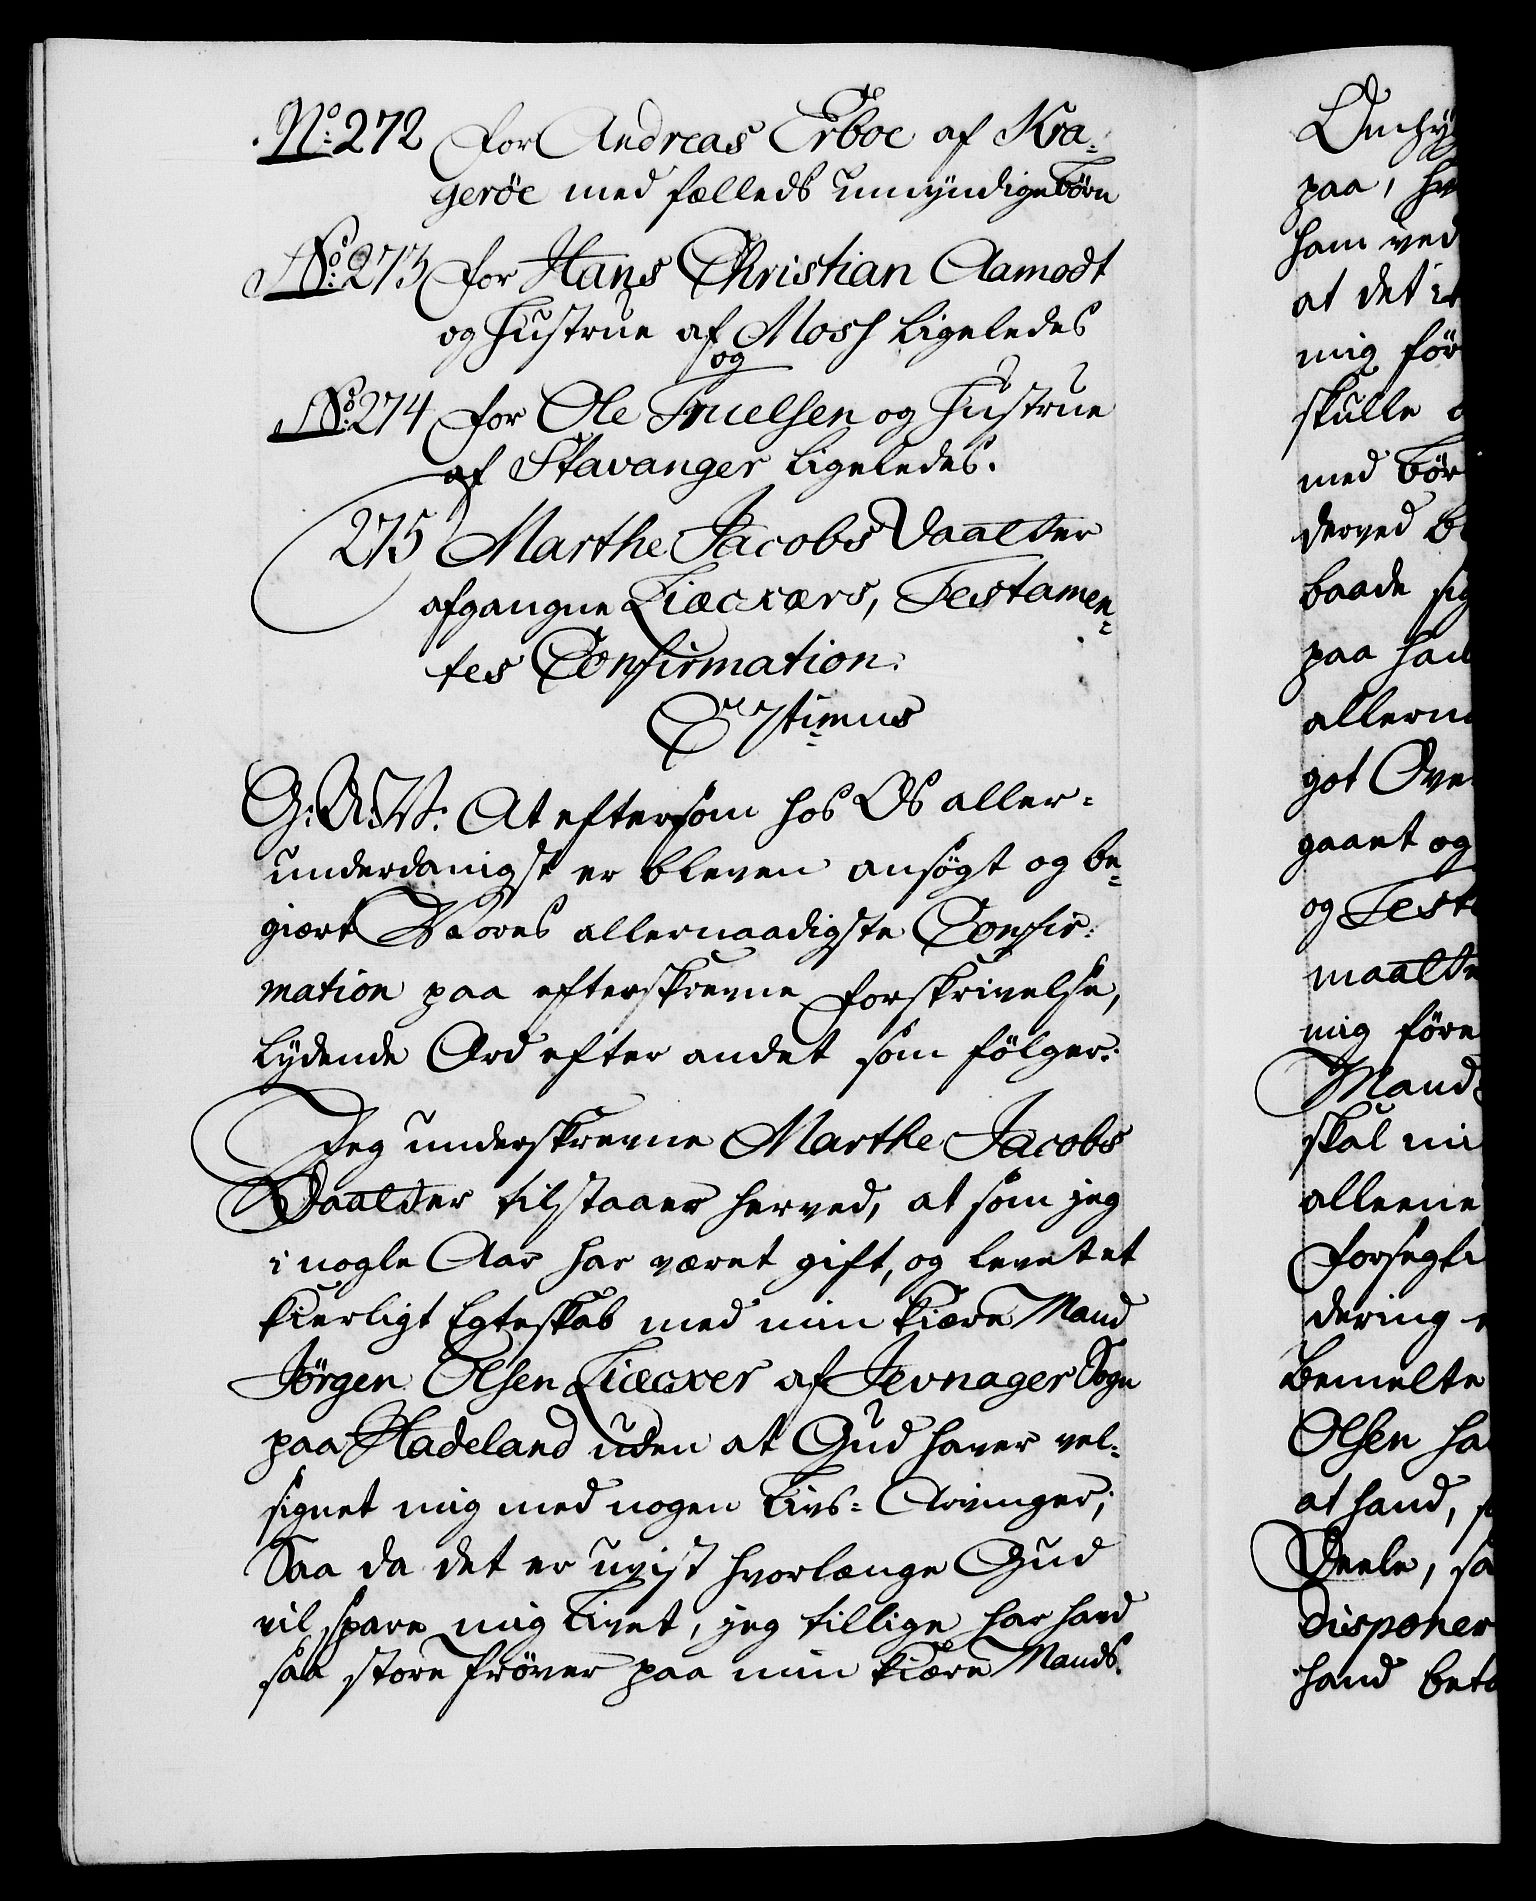 No: 272 for Andreas Erboe af Kra-
gerøe med fælleds umyndige Børn
No: 273 for Hans Christian Aamodt
og Hustrue af Moss ligeledes
og
No: 274 for Ole Truelsen og Hustrue
af Stavanger ligeledes.
275 Marthe Jacobs Daatter
afgangne Liæcxers, Testamen-
tes Confirmation.
Septimus
G: A: V: At eftersom hos Os aller-
underdanigst er bleven ansøgt og be-
giært Vores allernaadigste Confir-
mation paa efterskrevne forskrivelse,
lydende Ord efter andet som følger:
Jeg underskrevne Marthe Jacobs
Daatter tilstaaer herved, at som jeg
i nogle Aar har været gift, og levet et
kierligt Egteskab med min kiære Mand
Jörgen Olsen Liæcxer af Jevnager Sogn
paa Hadeland uden at Gud haver vel-
signet mig med nogen Livs-Arvinger;
Saa da det er uvist hvorlænge Gud
vil spare mig Livet, jeg tillige har havd
saa store Prøver paa min kiære Mands
paa,
ham ved
at det
mig før
skulle
med Bør
derved
baade sig
paa
allern
got Ove
gaaet og
og Test
maatte
mig føre
Mand
skal mi
alleene
forsegl
dering
bemelte
Olsen ha
at hand,
Deele, sa
disponer
hand bet